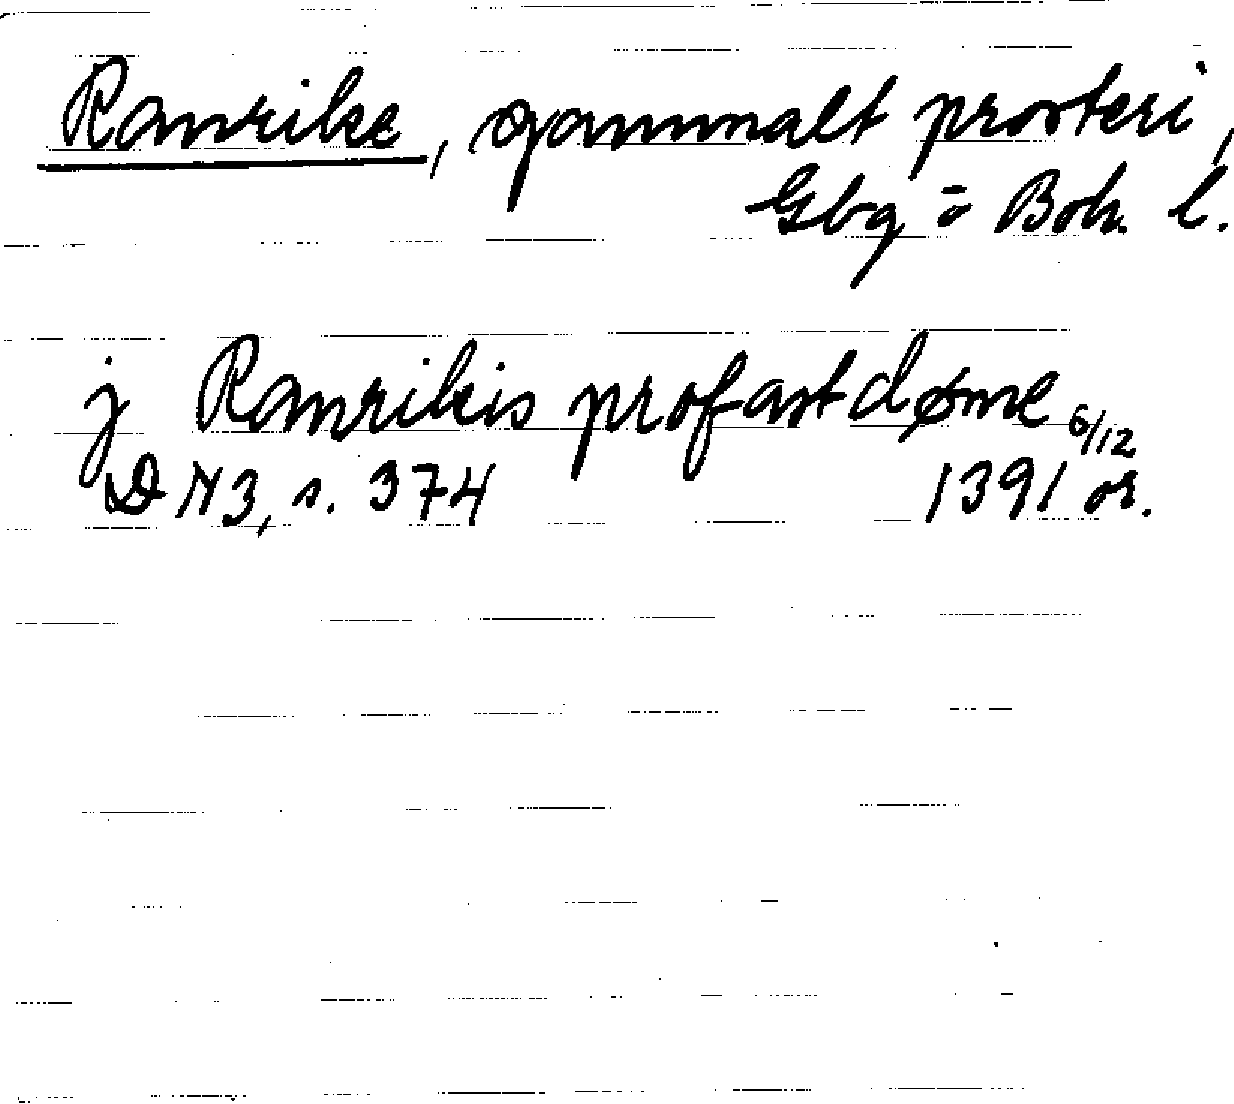 Ranrike, gammalt prosteri,
Gbg o Boh. l.
j Ranrikis profastdøme 6/12
DN3, s. 374 1391 or.